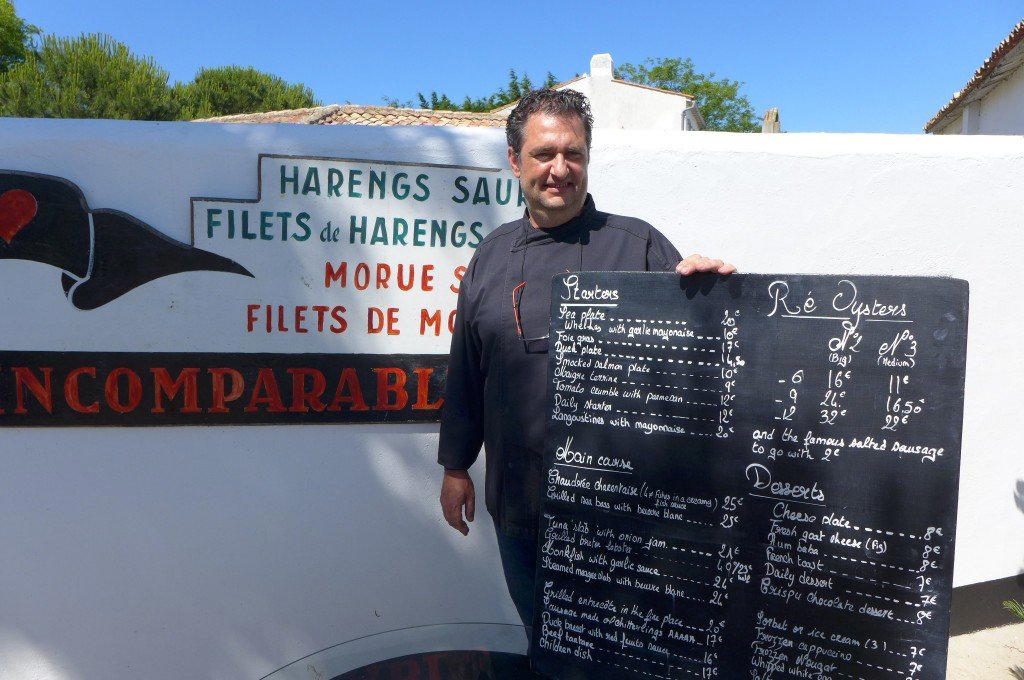 HARENGS SAU
FILETS de HARENGS
MORUE S
FILETS DE MO
INCOMPARABL
Starters
Sea plate 20€
Whelkes with garlic mayonnaise 10€
Foie gras 17€
Duck plate 14,50
Smocked salmon plate 10€
Maigre terrine 9€
Tomato crumble with parmesan 12€
Daily starter 12€
Langoustines with mayonnaise 20€
Main course
Chaudrée charentaise (4 fishes in a creamed fish sauce) 25€
Grilled sea bass with beurre blanc 25€
Tuna 'stab' with onion jam 21€
Grilled brever lobster
Monkfish with garlic sauce 24€
Steamed meagre slab with beurre blanc 24€
Grilled entrecote in the fire place 20€
Sausage made of chitterlings AAAAA 17€
Duck breast with red fruits sauce
Beef tartare 16€
Children dish 17€
Ré Oysters
N°2 (Big) N°3 (Medium)
- 6 16€ 11€
- 9 24€ 16.50€
- 12 32€ 22€
and the famous salted sausage
to go with 2€
Desserts
Cheese plate 8€
Fresh goat cheese (Fig) 8€
Rum baba 8€
French toast 8€
Daily dessert 7€
Crispy chocolate dessert 8€
Sorbet or ice cream (3) 7€
Frozzen cappuccino
Frozzen Nougat 7€
Whipped white egg